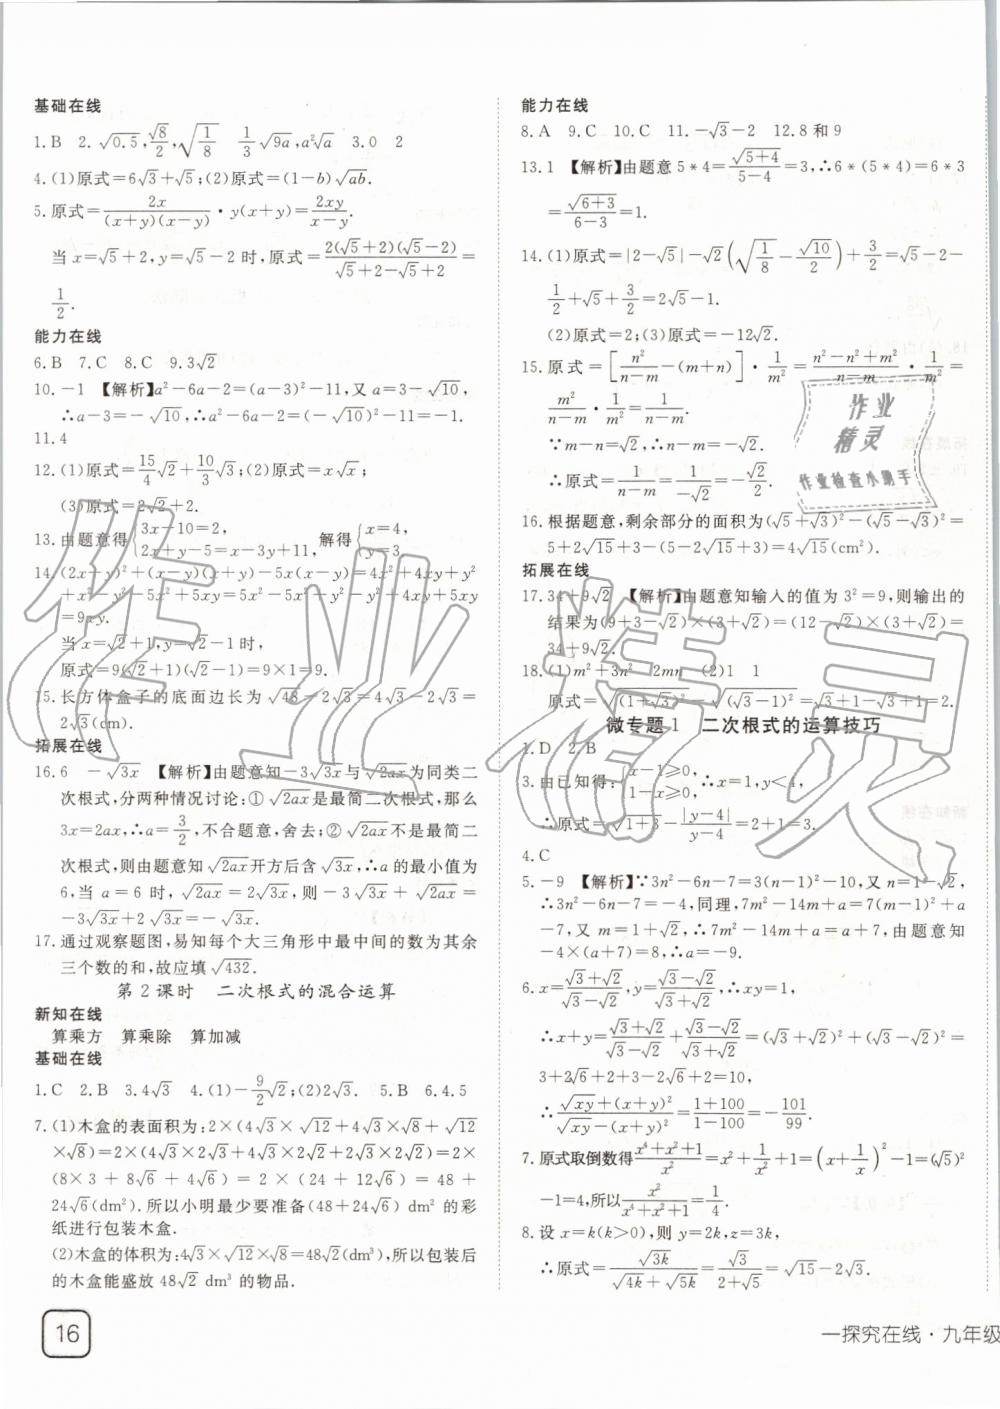 基础在线
1.B 2.√0.5,√8/2,√(1/8) 1/3√9a,a²√a 3.0 2
4.(1)原式=6√3+√5;(2)原式=(1-b)√ab.
5.原式=2x/((x+y)(x-y))·y(x+y)=2xy/(x-y).
当x=√5+2,y=√5-2时,原式=2(√5+2)(√5-2)/(√5+2-√5+2)=
1/2.
能力在线
6.B 7.C 8.C 9.3√2
10.-1 【解析】a²-6a-2=(a-3)²-11,又a=3-√10,
∴a-3=-√10,∴a²-6a-2=(-√10)²-11=-1.
11.4
12.(1)原式=15/4√2+10/3√3;(2)原式=x√x;
(3)原式=2√2+2.
13.由题意得{3x-10=2, 2x+y-5=x-3y+11,解得{x=4, y=3.
14.(2x+y)²+(x-y)(x+y)-5x(x-y)=4x²+4xy+y²
+x²-y²-5x²+5xy=5x²-5x²-y²+y²+4xy+5xy
=9xy.
当x=√2+1,y=√2-1时,
原式=9(√2+1)(√2-1)=9×1=9.
15.长方体盒子的底面边长为√48-2√3=4√3-2√3=
2√3(cm).
拓展在线
16.6 -√3x 【解析】由题意知-3√3x与√2ax为同类二
次根式,分两种情况讨论:①√2ax是最简二次根式,那么
3x=2ax,∴a=3/2,不合题意,舍去;②√2ax不是最简二
次根式,则由题意知√2ax开方后含√3x,∴a的最小值为
6,当a=6时,√2ax=2√3x,则-3√3x+√2ax=
-3√3x+2√3x=-√3x.
17.通过观察题图,易知每个大三角形中最中间的数为其余
三个数的和,故应填√432.
第2课时 二次根式的混合运算
新知在线
算乘方 算乘除 算加减
基础在线
1.C 2.B 3.4√3 4.(1)-9/2√2;(2)2√3. 5.B 6.4.5
7.(1)木盒的表面积为:2×(4√3×√12+4√3×√8+√12
×√8)=2×(4√3×2√3+4√3×2√2+2√3×2√2)=2×
(8×3+8√6+4√6)=2×(24+12√6)=48+
24√6(dm²).所以小明最少要准备(48+24√6)dm²的彩
纸进行包装木盒.
(2)木盒的体积为:4√3×√12×√8=48√2(dm³),所以包装后
的木盒能盛放48√2 dm³的物品.
16
能力在线
8.A 9.C 10.C 11.-√3-2 12.8和9
13.1 【解析】由题意5*4=√(5+4)/(5-4)=3,∴6*(5*4)=6*3
=√(6+3)/(6-3)=1.
14.(1)原式=|2-√5|-√2(√(1/8)-√10/2)+3/2=√5-2-
1/2+√5+3/2=2√5-1.
(2)原式=2;(3)原式=-12√2.
15.原式=[n²/(n-m)-(m+n)]·1/m²=(n²-n²+m²)/(n-m)·1/m²=
m²/(n-m)·1/m²=1/(n-m).
∵m-n=√2,∴n-m=-√2,
∴原式=1/(n-m)=1/(-√2)=-√2/2.
16.根据题意,剩余部分的面积为(√5+√3)²-(√5-√3)²=
5+2√15+3-(5-2√15+3)=4√15(cm²).
拓展在线
17.34+9√2 【解析】由题意知输入的值为3²=9,则输出的
结果为(9+3-√2)×(3+√2)=(12-√2)×(3+√2)=
34+9√2.
18.(1)m²+3n² 2mn (2)1 1
原式=√(1+√3)²-√(√3-1)²=√3+1-√3+1=2.
微专题1 二次根式的运算技巧
1.D 2.B
3.由已知得:{x-1≥0, 1-x≥0,∴x=1,y<4,
∴原式=√(1+3)-|y-4|/(y-4)=2+1=3.
4.C
5.-9 【解析】∵3n²-6n-7=3(n-1)²-10,又n=1-√2,
∴3n²-6n-7=-4,同理,7m²-14m+a=7(m-1)²+a
-7,又m=1+√2,∴7m²-14m+a=a+7,由题意知
-4(a+7)=8,∴a=-9.
6.x=(√3+√2)/(√3-√2),y=(√3-√2)/(√3+√2),∴xy=1,
∴x+y=(√3+√2)/(√3-√2)+(√3-√2)/(√3+√2)=(√3+√2)²+(√3-√2)²=
3+2√6+2+3-2√6+2=10,
∴(√xy+(x+y)²)/(√xy-(x+y)²)=(1+100)/(1-100)=-101/99.
7.原式取倒数得(x⁴+x²+1)/x²=x²+1/x²+1=(x+1/x)²-1=(√5)²
-1=4,所以x²/(x⁴+x²+1)=1/4.
8.设x=k(k>0),则y=2k,z=3k,
∴原式=√3k/(√4k+√5k)=√3/(2+√5)=√15-2√3.
一探究在线·九年级
作业精灵
作业
精灵
作业检查小助手